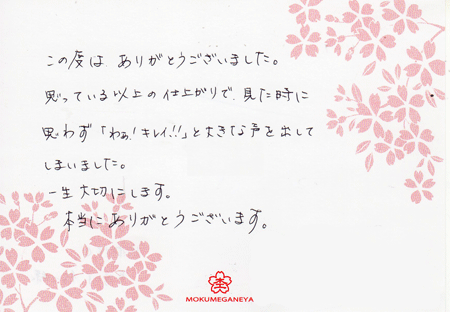 この度は、ありがとうございました。
思っている以上の仕上がりで、見た時に
思わず「わぁ！キレイ!!」と大きな声を出して
しまいました。
一生大切にします。
本当にありがとうございます。
MOKUMEGANEYA